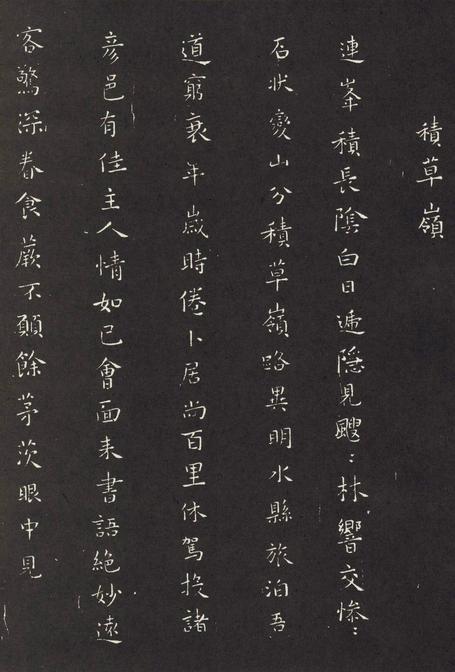 積草嶺
連峯積長陰白日遞隱見颼〻林響交慘〻
石狀變山分積草嶺路異明水縣旅泊吾
道窮衰年歲時倦卜居尚百里休駕投諸
彥邑有佳主人情如已會面来書語絕妙遠
客驚深眷食蕨不願餘茅茨眼中見